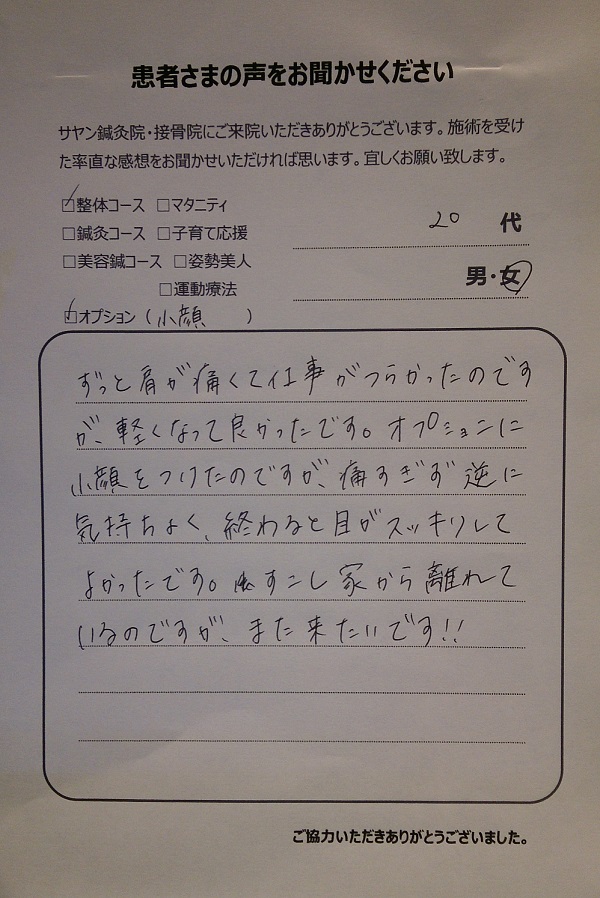 患者さまの声をお聞かせください
サヤン鍼灸院・接骨院にご来院いただきありがとうございます。施術を受け
た率直な感想をお聞かせいただければ思います。宜しくお願い致します。
☑整体コース □マタニティ
20 代
□鍼灸コース □子育て応援
□美容鍼コース □姿勢美人
男・女
□運動療法
☑オプション(小顔 )
ずっと肩が痛くて仕事がつらかったのです
が、軽くなって良かったです。オプションに
小顔をつけたのですが、痛すぎず逆に
気持ちよく、終わると目がスッキリして
よかったです。すこし家から離れて
いるのですが、また来たいです!!
ご協力いただきありがとうございました。